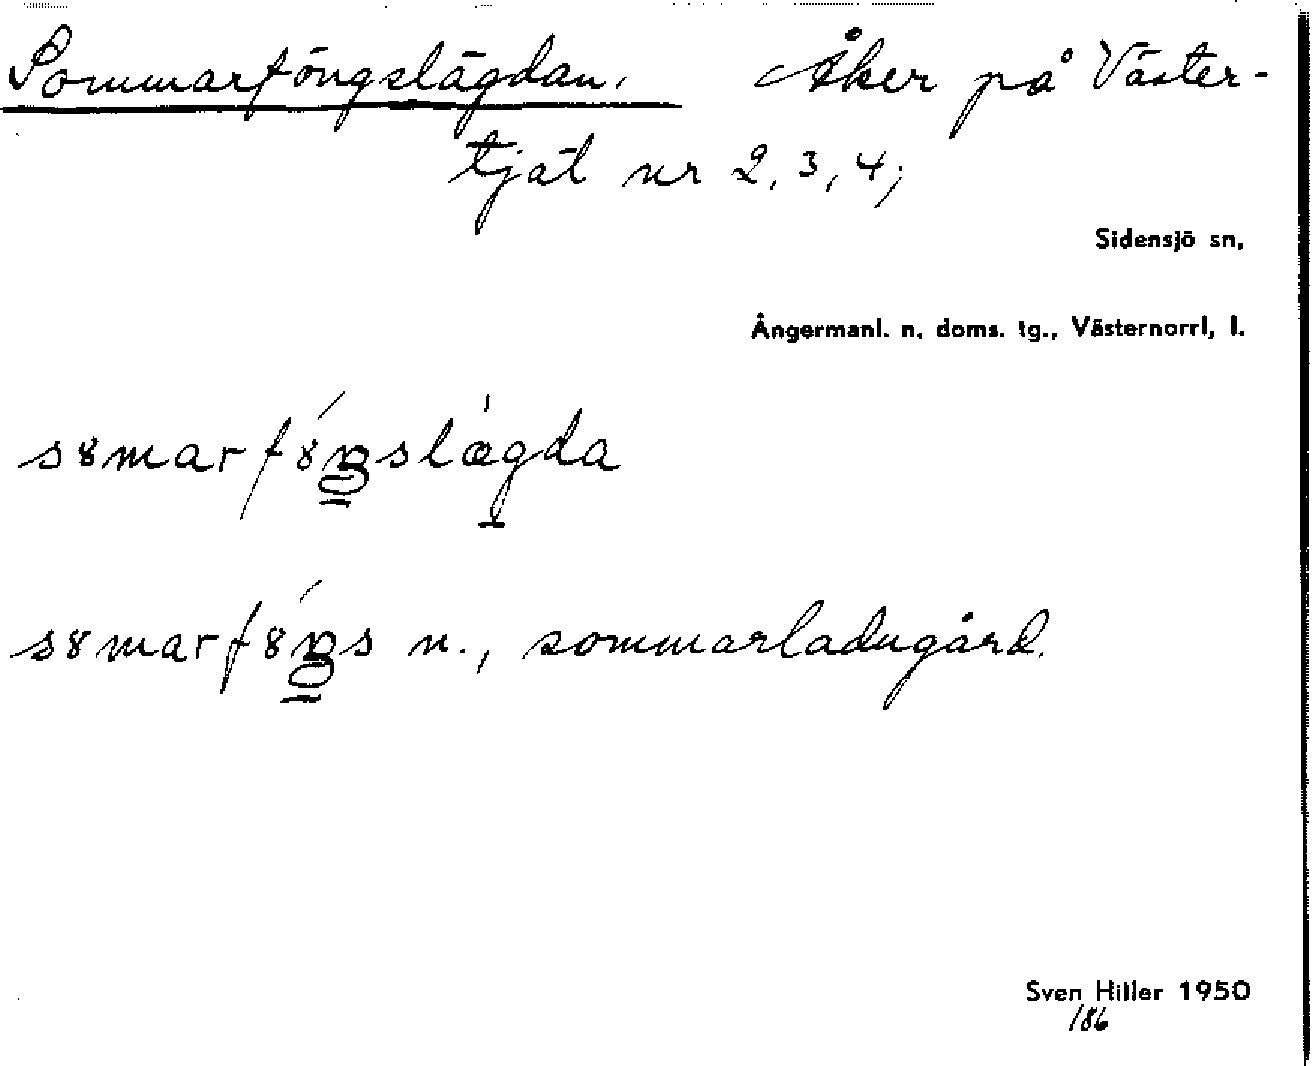 Sommarföngslägdan. Åker på Väster-
tjäl nr 2, 3, 4;
Sidensjö sn.
Ångermanl. n. doms. tg., Västernorrl, l.
s8marf8ŋslægda
s8marf8ŋs n., sommarladugård.
Sven Hiller 1950
186